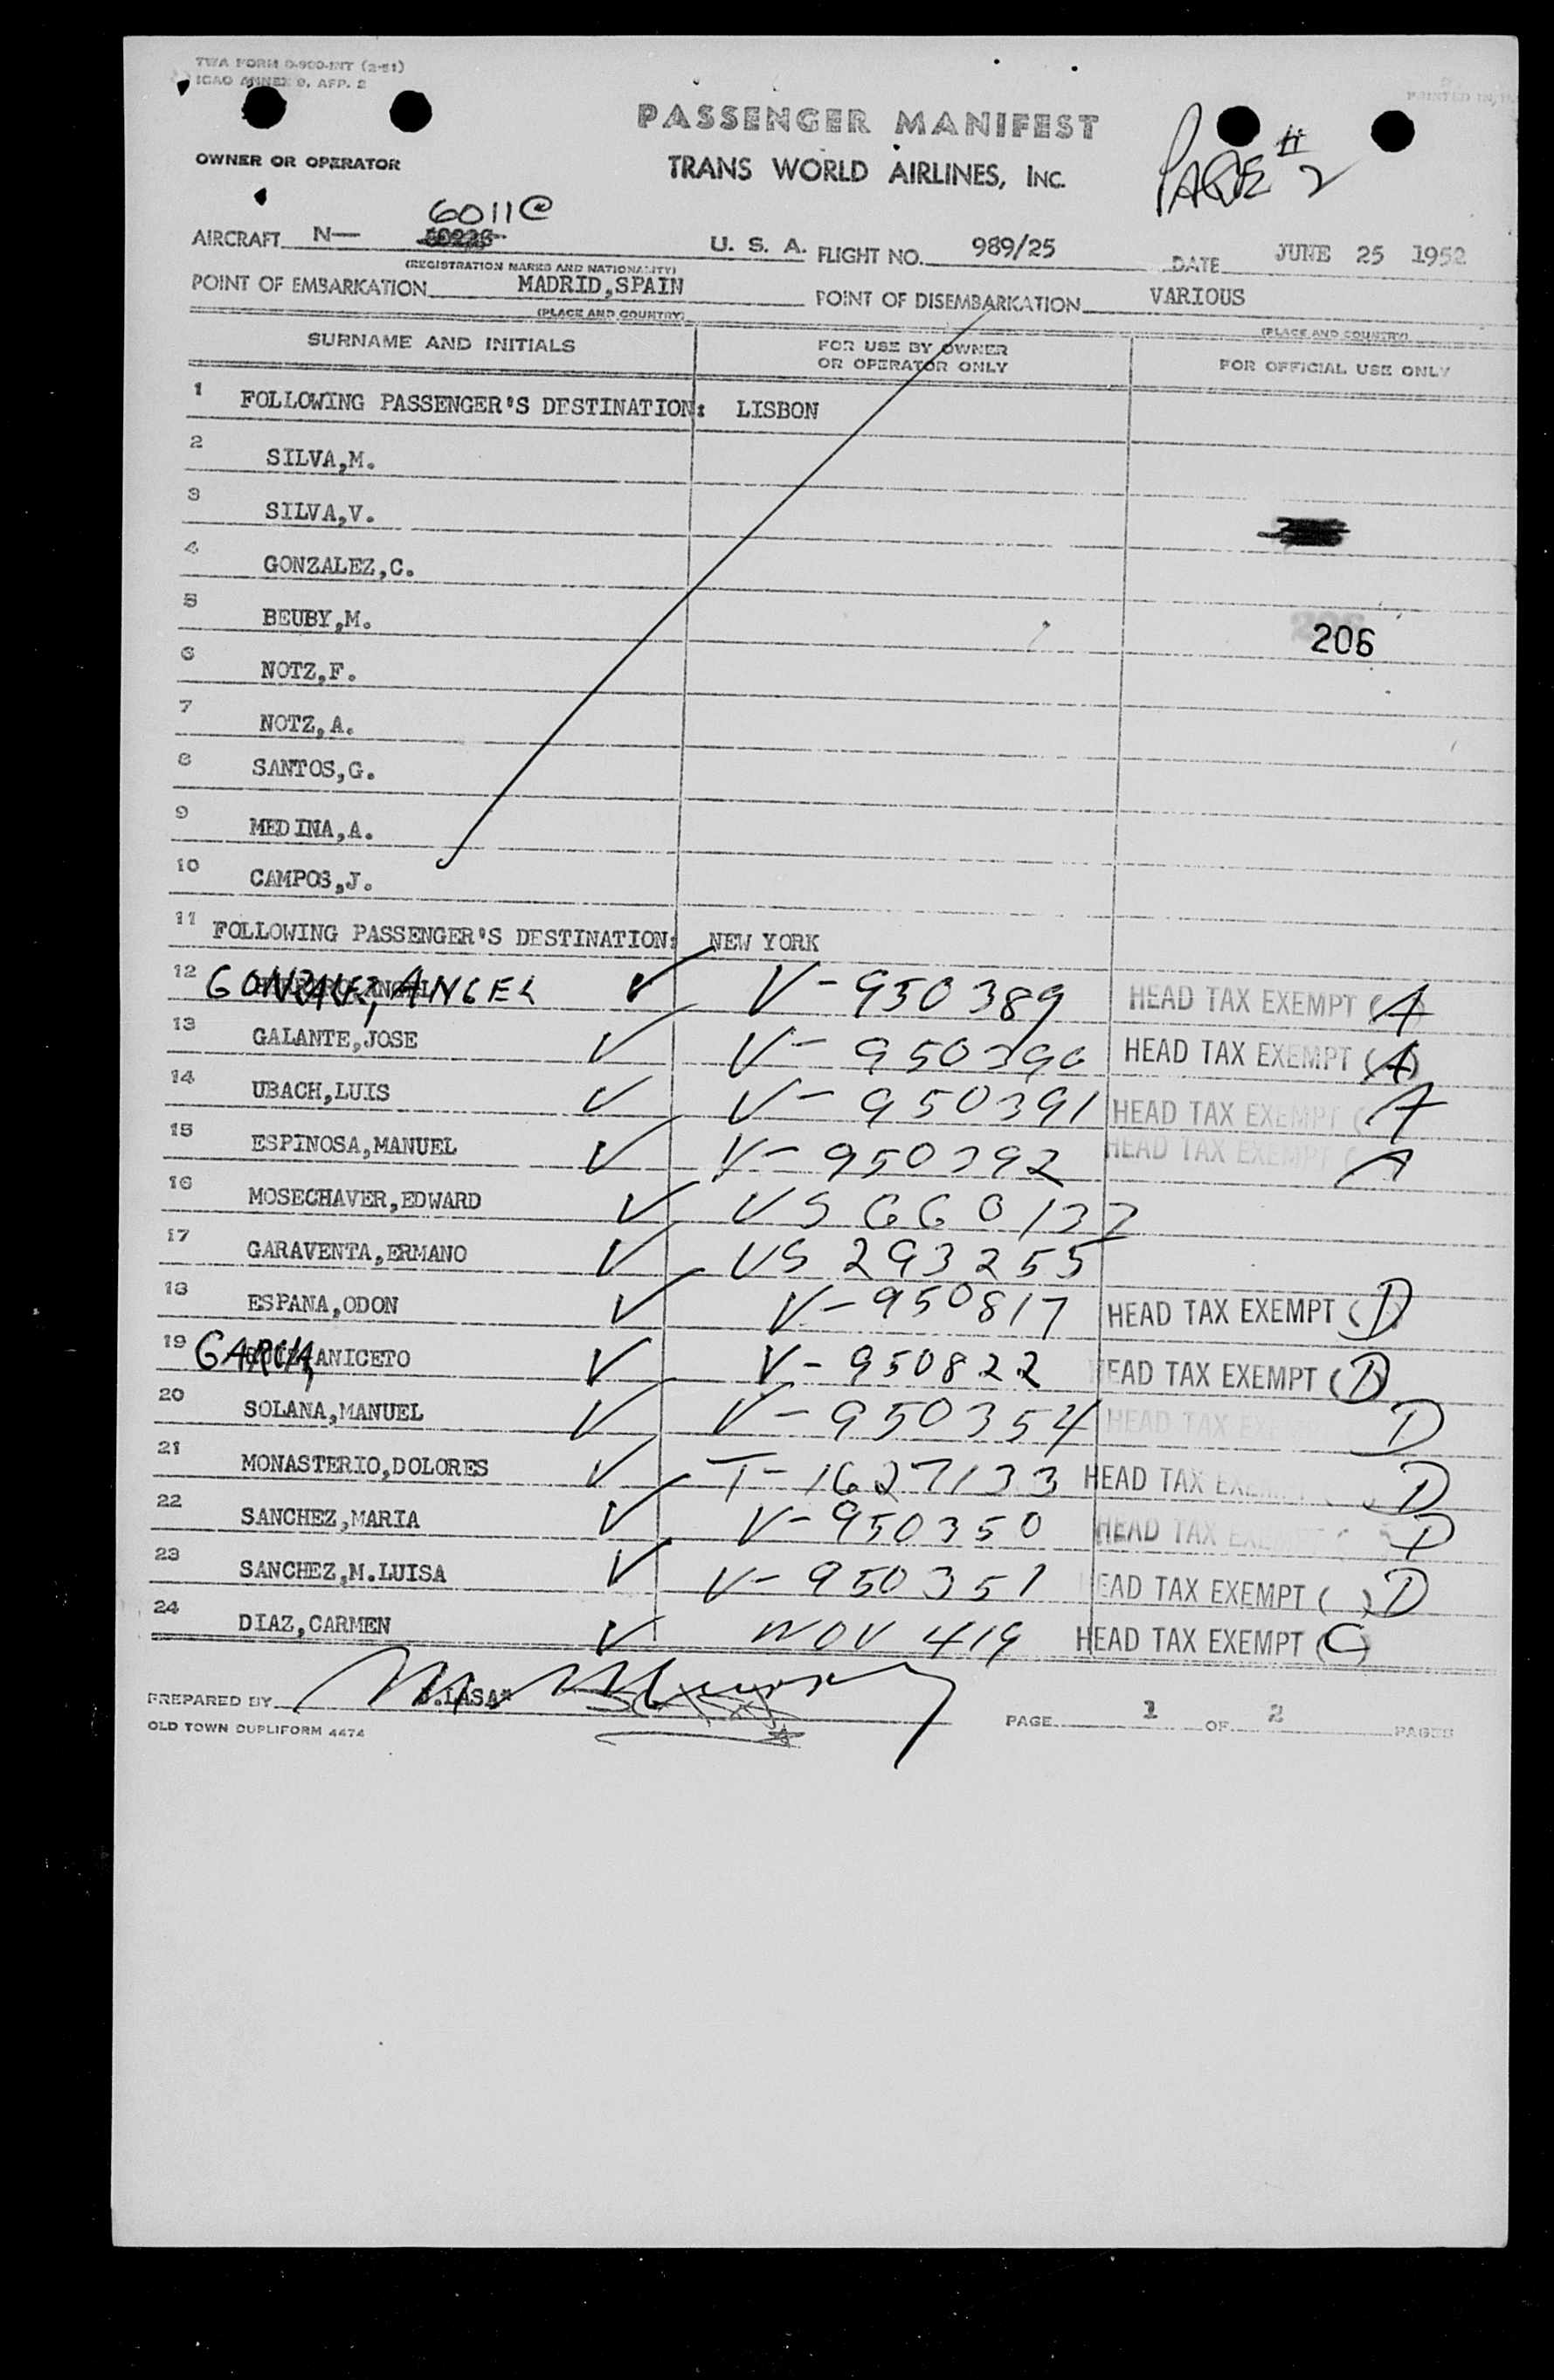 TWA FORM O-900-INT (2-51)
ICAO ANNEX 9, APP. 2
PRINTED IN
PASSENGER MANIFEST
OWNER OR OPERATOR
TRANS WORLD AIRLINES, INC.
PAGE # 2
6011C
AIRCRAFT N— U. S. A. FLIGHT NO. 989/25 DATE JUNE 25 1952
(REGISTRATION MARKS AND NATIONALITY)
POINT OF EMBARKATION MADRID,SPAIN POINT OF DISEMBARKATION VARIOUS
(PLACE AND COUNTRY) (PLACE AND COUNTRY)
SURNAME AND INITIALS FOR USE BY OWNER OR OPERATOR ONLY FOR OFFICIAL USE ONLY
1 FOLLOWING PASSENGER'S DESTINATION: LISBON
2 SILVA,M.
3 SILVA,V.
4 GONZALEZ,C.
5 BEUBY,M. 206
6 NOTZ,F.
7 NOTZ,A.
8 SANTOS,G.
9 MEDINA,A.
10 CAMPOS,J.
11 FOLLOWING PASSENGER'S DESTINATION: NEW YORK
12 GONZALEZ, ANGEL ✓ V-950389 HEAD TAX EXEMPT (A)
13 GALANTE,JOSE ✓ V-950390 HEAD TAX EXEMPT (A)
14 UBACH,LUIS ✓ V-950391 HEAD TAX EXEMPT ( A
15 ESPINOSA,MANUEL ✓ V-950392 HEAD TAX EXEMPT ( A
16 MOSECHAVER,EDWARD ✓ US 660137
17 GARAVENTA,ERMANO ✓ US 293255
18 ESPANA,ODON ✓ V-950817 HEAD TAX EXEMPT (D)
19 GARCIA,ANICETO ✓ V-950822 HEAD TAX EXEMPT (D)
20 SOLANA,MANUEL ✓ V-950354 HEAD TAX EXEMPT D
21 MONASTERIO,DOLORES ✓ T-1627133 HEAD TAX EXEMPT D
22 SANCHEZ,MARIA ✓ V-950350 HEAD TAX EXEMPT ( ) D
23 SANCHEZ,M.LUISA ✓ V-950351 HEAD TAX EXEMPT ( ) D
24 DIAZ,CARMEN ✓ NOV 419 HEAD TAX EXEMPT (C)
PREPARED BY J.LASA*
PAGE 1 OF 2 PAGES
OLD TOWN DUPLIFORM 4474